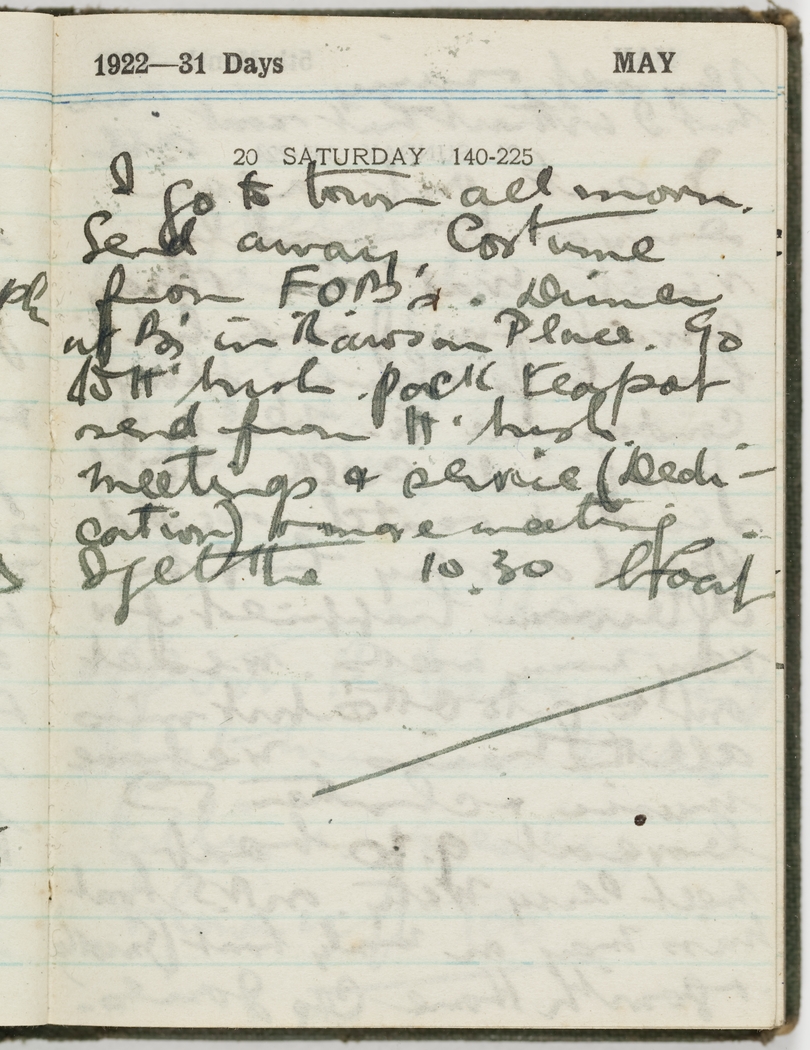 1922—31 Days MAY
20 SATURDAY 140-225
I go to town all morn.
Send away Costume
from FOB's. Dinner
at B's in Rawson Place. Go
to H' bush. pack teapot
send from H' bush.
meetings & service (Dedi-
cation) & more meeting.
I get the 10.30 boat